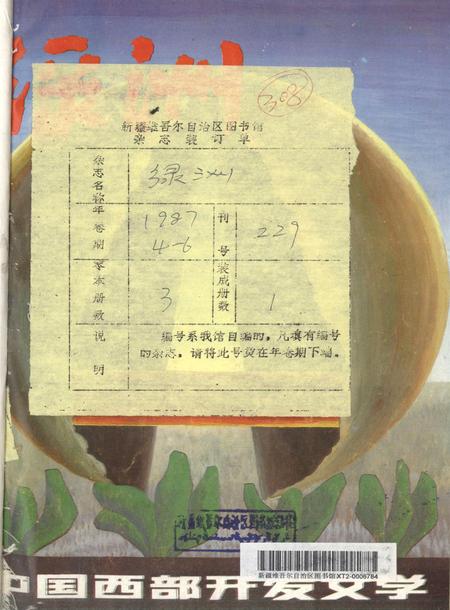 绿洲
308
新疆维吾尔自治区图书馆
杂志装订单
杂志名称 绿洲
年卷期 1987 4-6 刊号 229
零本册数 3 装成册数 1
说明 编号系我馆自编的，凡填有编号
的杂志，请将此号烫在年卷期下端。
新疆维吾尔自治区图书馆藏书
新疆维吾尔自治区图书馆XT2-0008784
中国西部开发文学